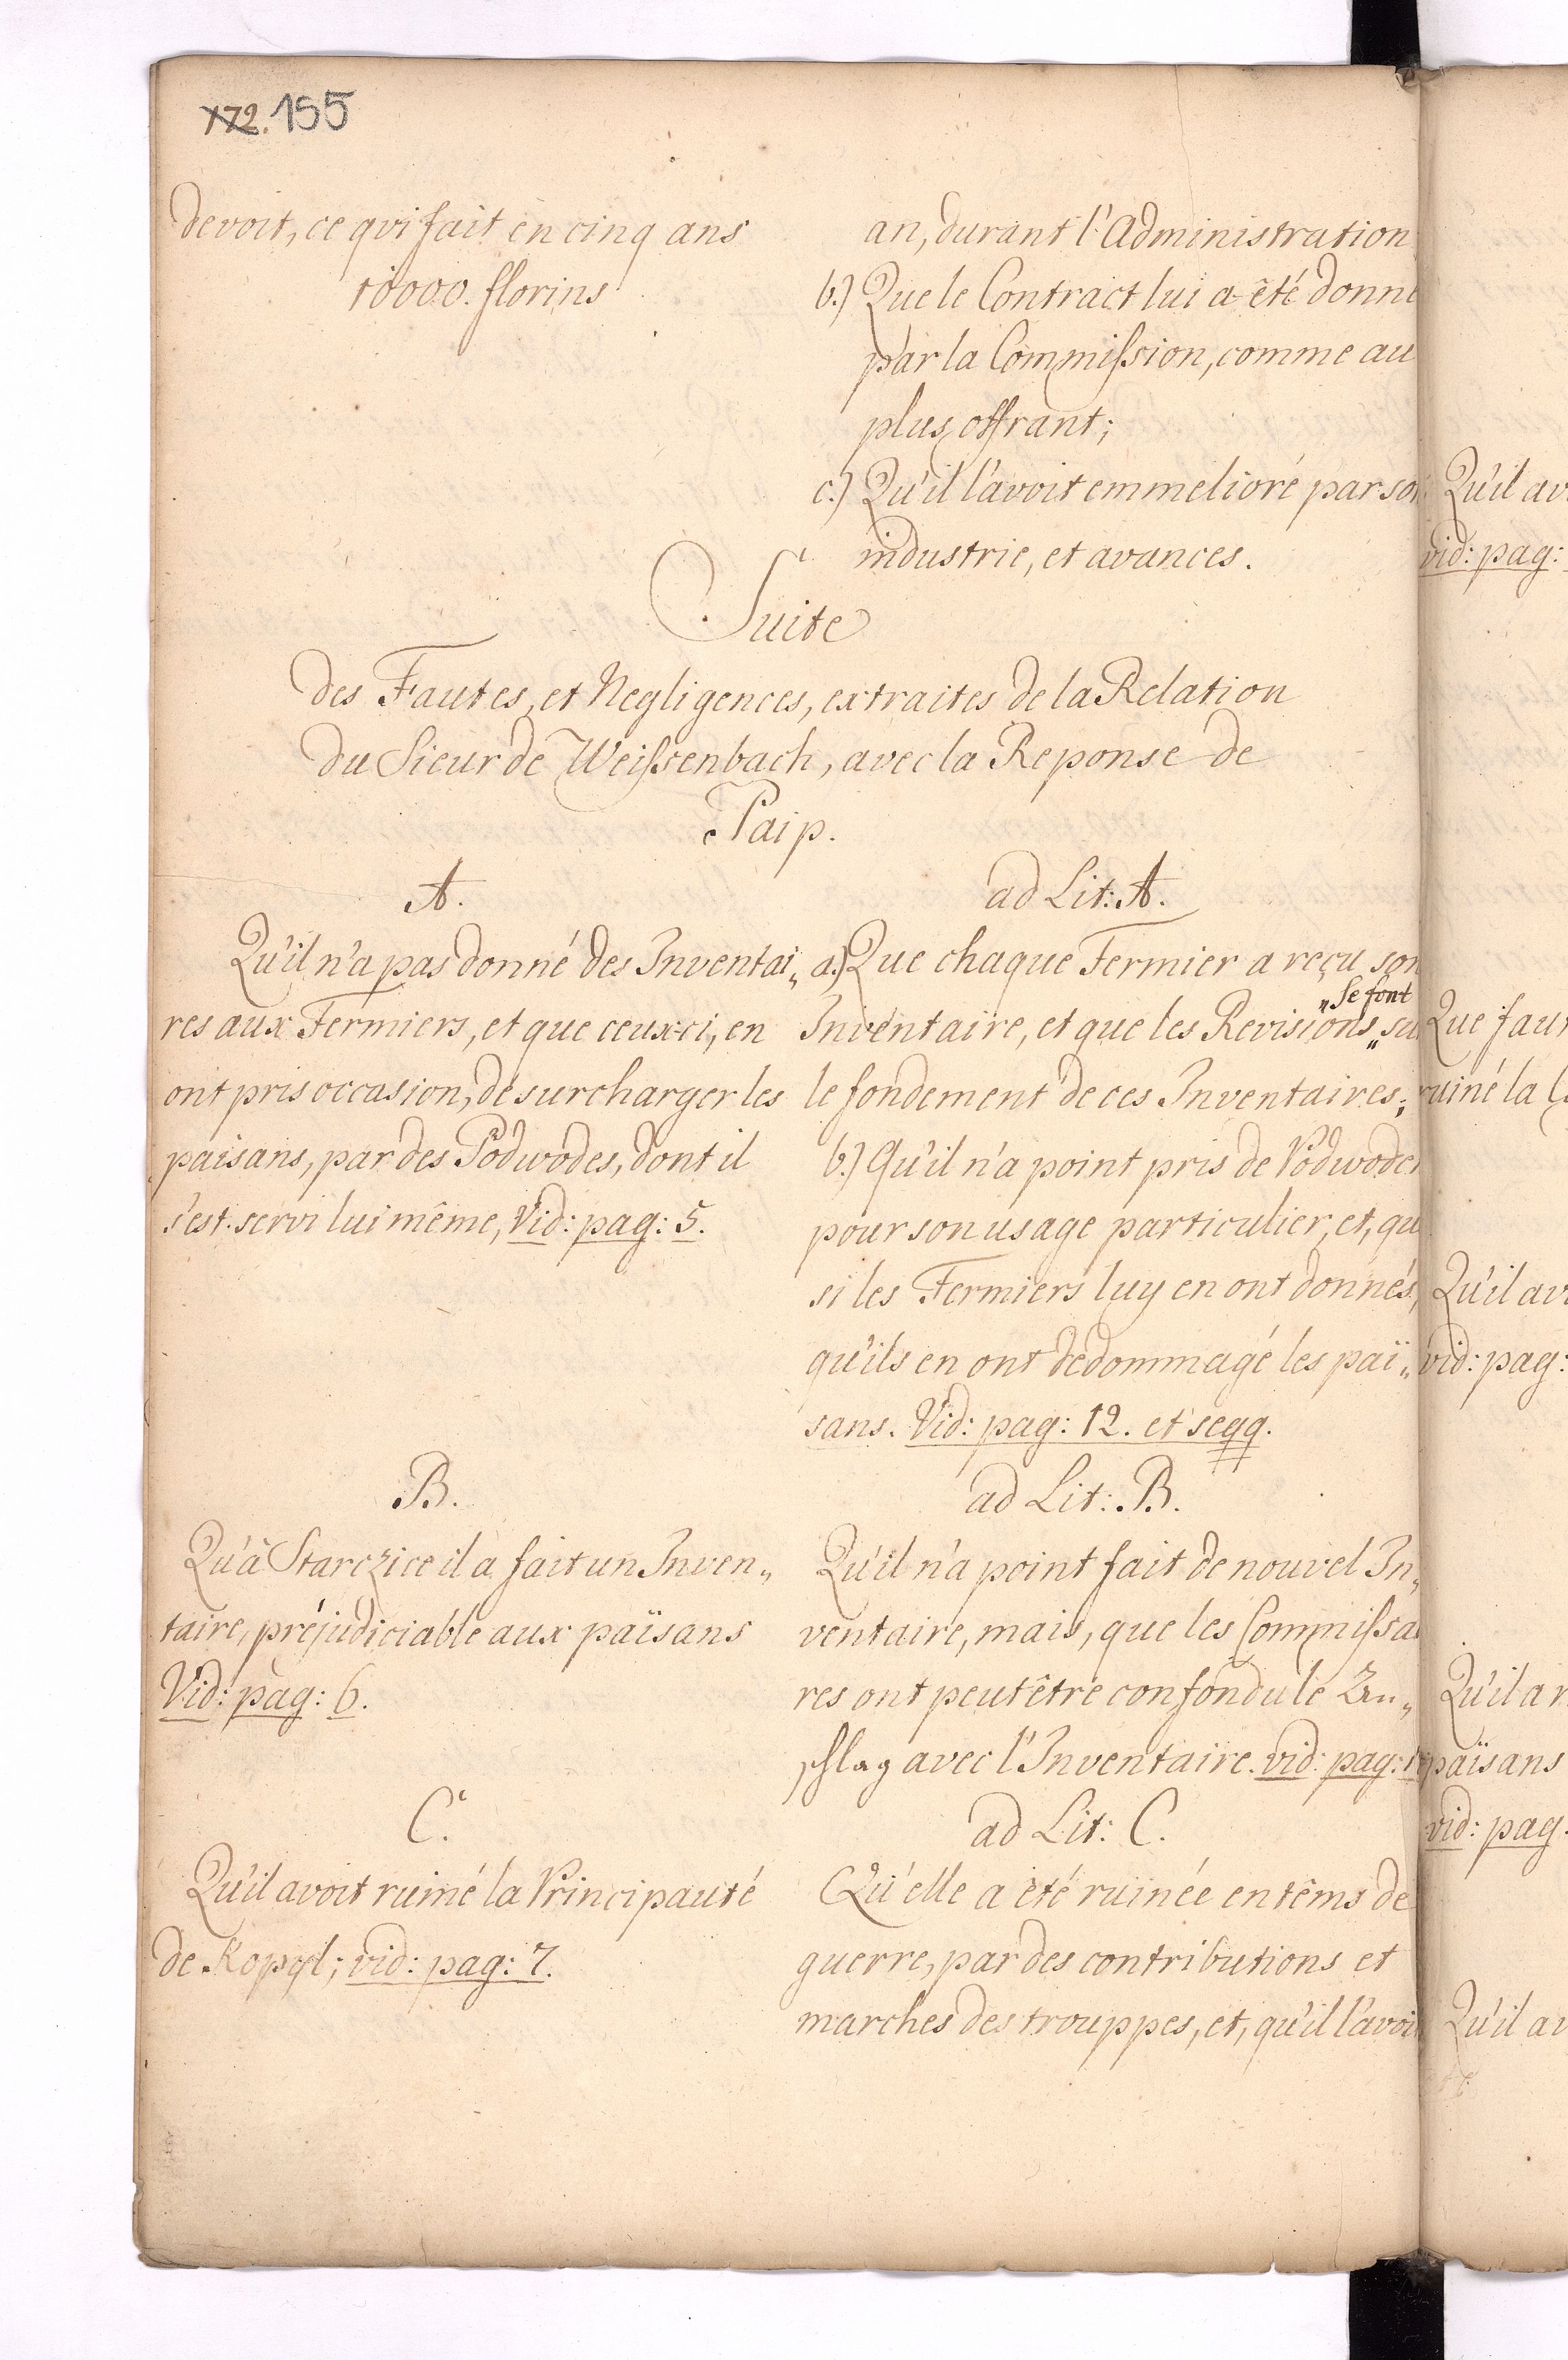 172. 155
devoit, ce qvi fait en cinq ans
10000. florins
an, durant l'Administration
b.) Que le Contract lui a été donné
par la Commission, comme au
plus offrant;
c.) Qu'il l'avoit emmelioré par son
industrie, et avances.
Suite
des Fautes, et Negligences, extraites de la Relation
du Sieur de Weissenbach, avec la Reponse de
Paip.
A.
Qu'il n'a pas donné des Inventai„
res aux Fermiers, et que ceux-ci, en
ont pris occasion, de surcharger les
paisans, par des Podwodes, dont il
s'est servi lui même, Vid: pag: 5.
ad Lit: A.
a.) Que chaque Fermier a reçu son
„se font
Inventaire, et que les Revisions „su
le fondement de ces Inventaires;
b.) Qu'il n'a point pris de Podwodes
pour son usage particulier, et, qu
si les Fermiers luy en ont donnés,
qu'ils en ont dédommagé les paï„
sans. Vid: pag: 12. et seqq.
B.
Qu'à Starczice il a fait un Inven„
taire, préjudiciable aux païsans
Vid: pag: 6.
ad Lit: B.
Qu'il n'a point fait de nouvel In„
ventaire, mais, que les Commissai
res ont peutêtre confondu le Zu„
schlag avec l'Inventaire. vid: pag: 1
C.
Qu'il avoit ruiné la Principauté
de Kopyl; vid: pag: 7.
ad Lit: C.
Qu'elle a été ruinée en têms de
guerre, par des contributions et
marches des trouppes, et, qu'il l'avoit
Qu'il av
vid: pag:
Que faut
ruiné la
Qu'il av
vid: pag:
Qu'il a
païsans
vid: pag:
Qu'il av